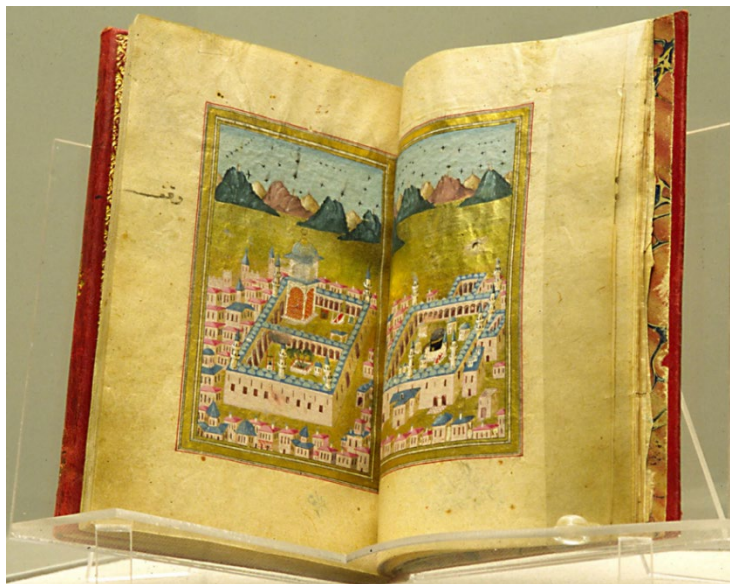 وقف